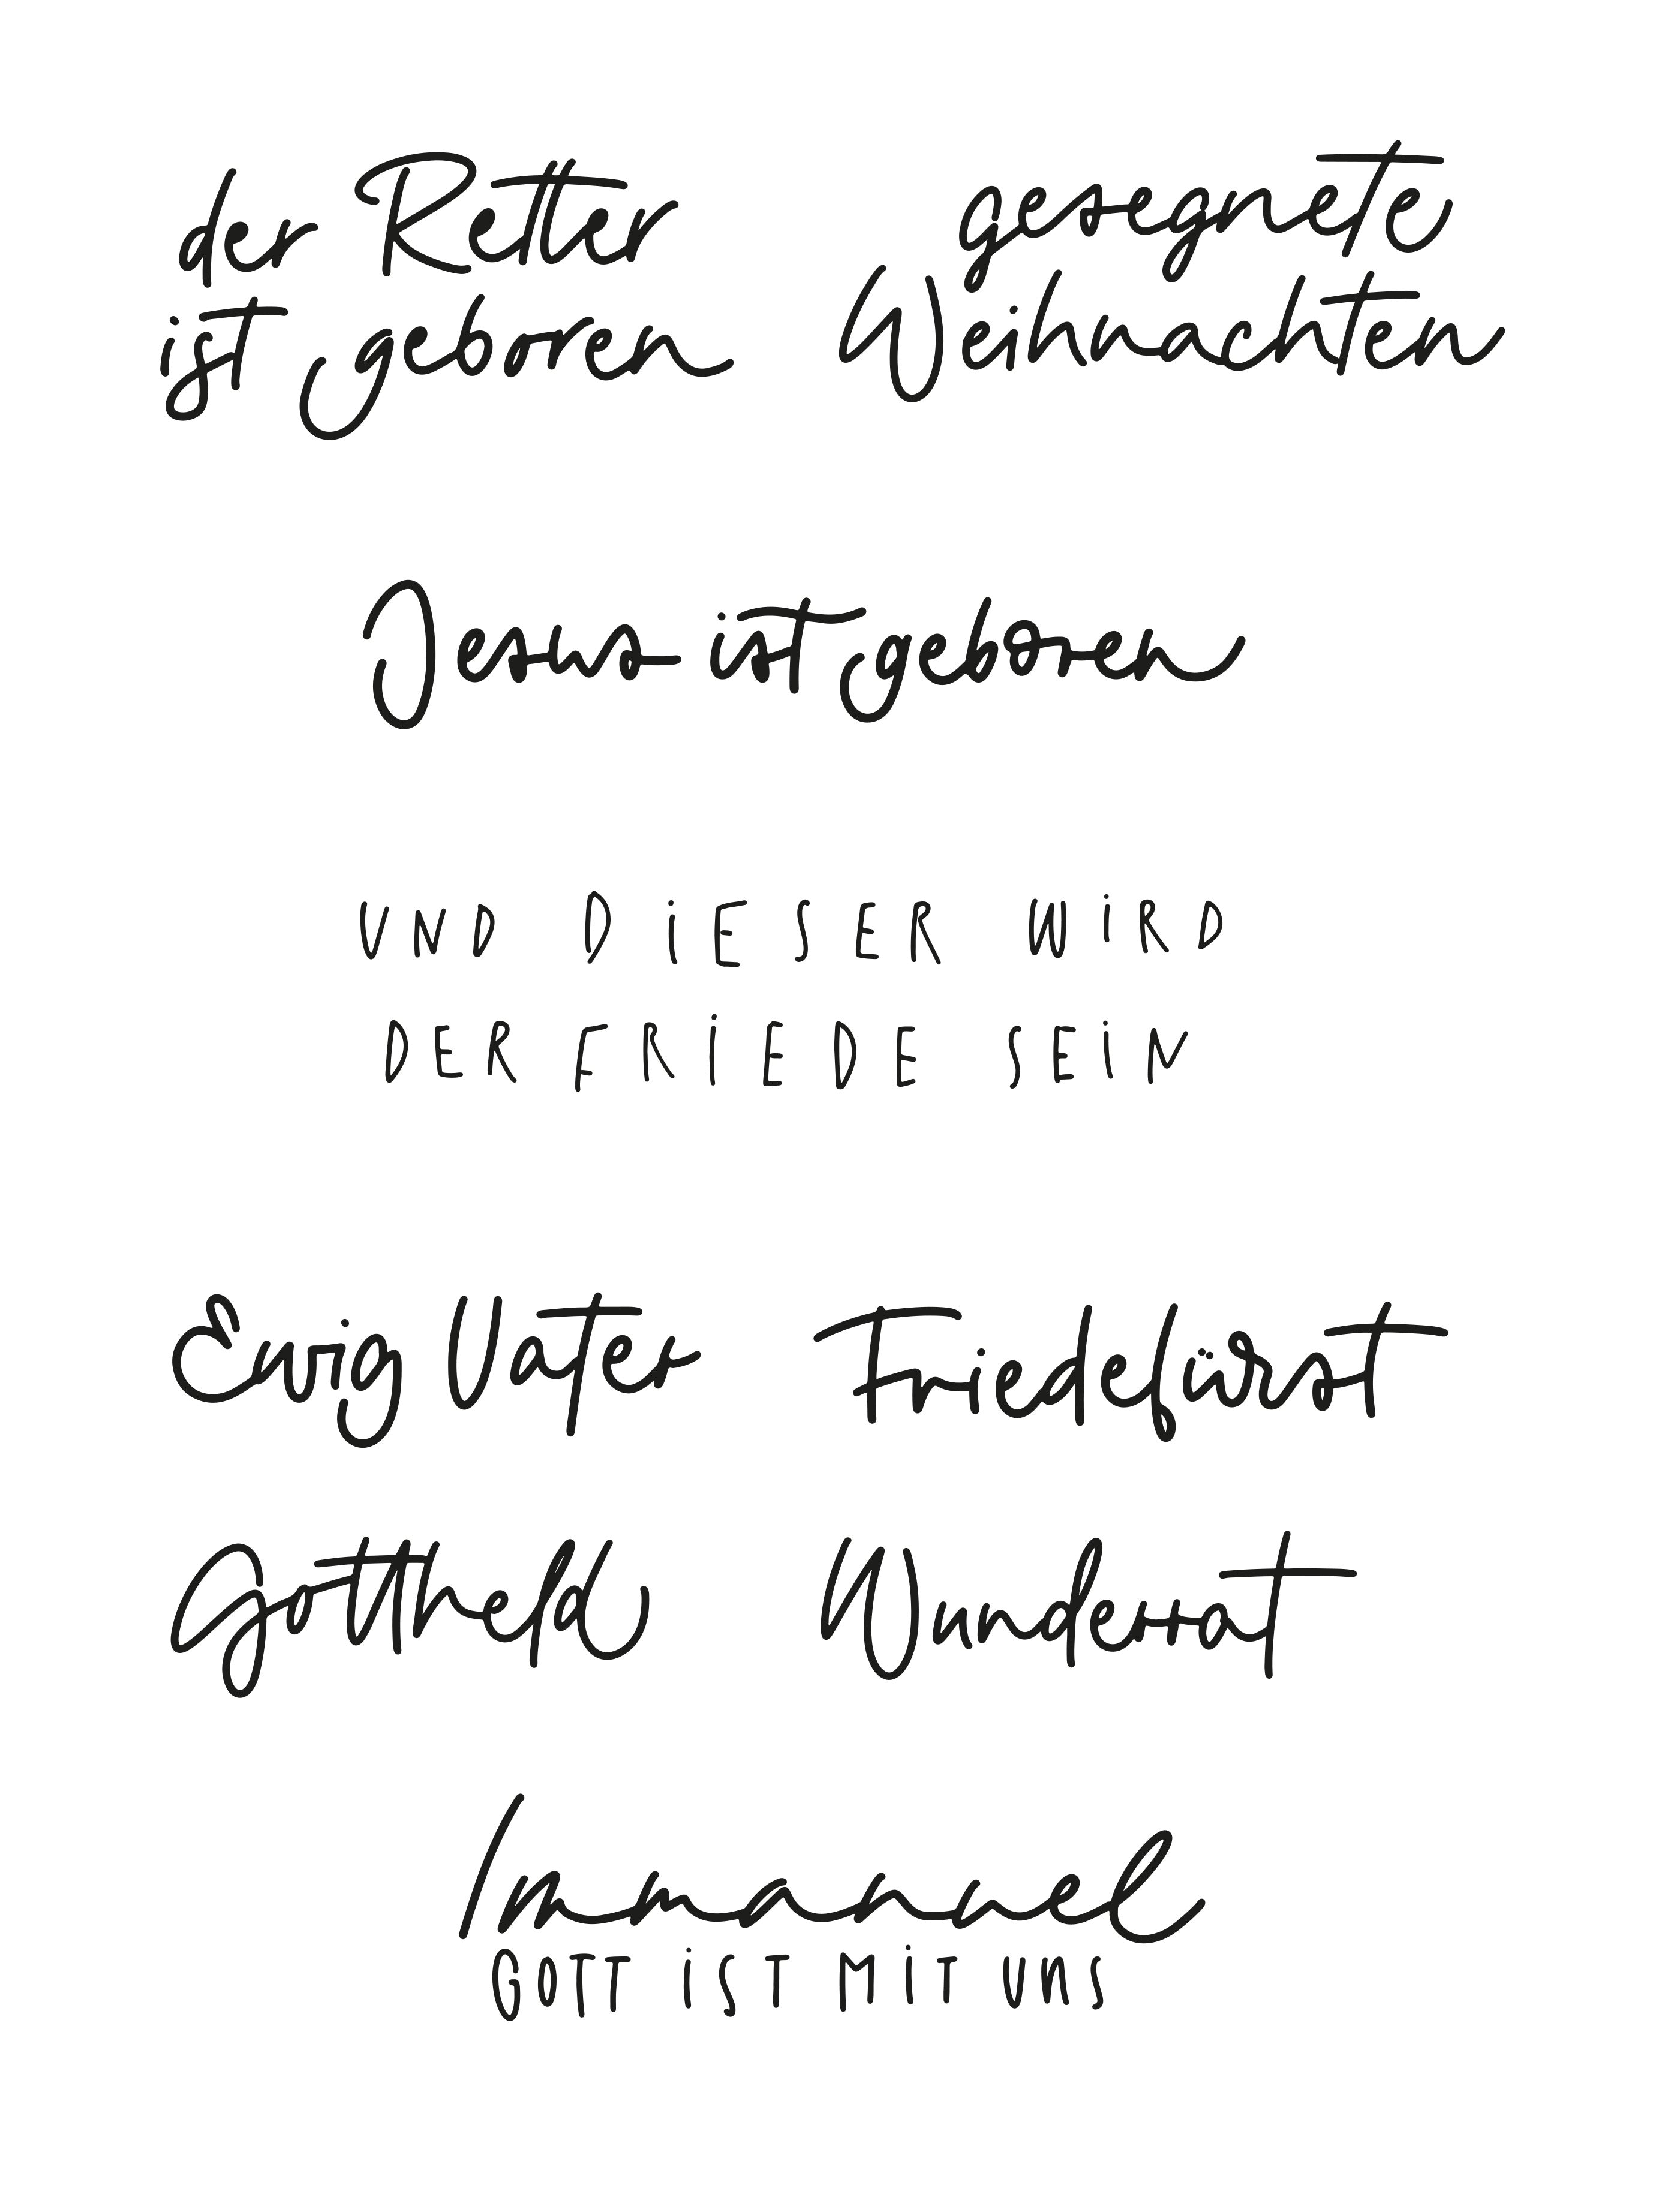 der Retter
ist geboren
gesegnete
Weihnachten
Jesus ist geboren
UND DiESER WiRD
DER FRiEDE SEiN
Ewig Vater
Friedefürst
Gottheld
Wunderrat
Immanuel
GOTT iST MiT UNS